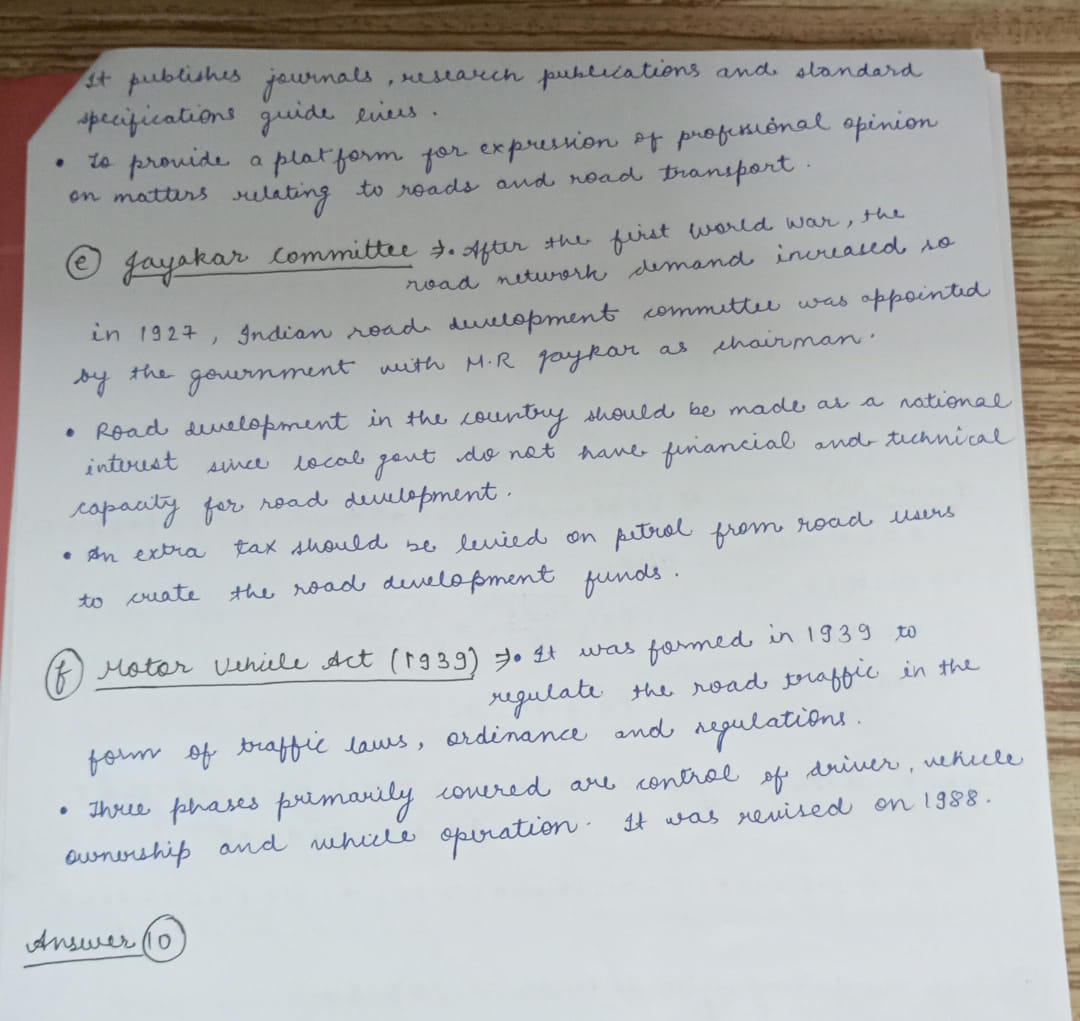 It publishes journals, research publications and standard
specifications guide lines.
• To provide a platform for expression of professional opinion
on matters relating to roads and road transport.
(e) Jayakar Committee → • After the first world war, the
road network demand increased so
in 1927, Indian road development committee was appointed
by the government with M.R Jaykar as chairman.
• Road development in the country should be made as a national
interest since local govt do not have financial and technical
capacity for road development.
• An extra tax should be levied on petrol from road users
to create the road development funds.
(f) Motor Vehicle Act (1939) → • It was formed in 1939 to
regulate the road traffic in the
form of traffic laws, ordinance and regulations.
• Three phases primarily covered are control of driver, vehicle
ownership and vehicle operation. It was revised on 1988.
Answer (10)